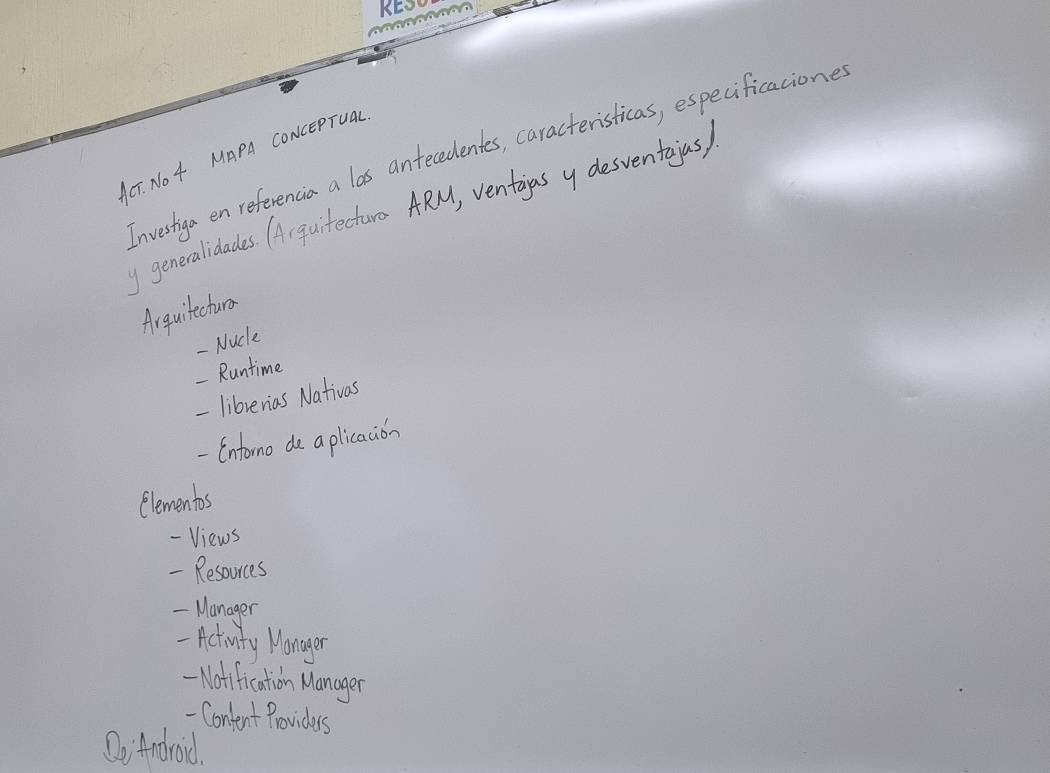 ACT. No 4 MAPA CONCEPTUAL.
Investiga en referencia a los antecedentes, caracteristicas, especificaciones
y generalidades. (Arquitectura ARM, ventajas y desventajas).
Arquitectura
- Nucle
- Runtime
- librerias Nativas
- Entorno de aplicación
Elementos
- Views
- Resources
- Manager
- Activity Manager
- Notification Manager
- Content Providers
De Android.